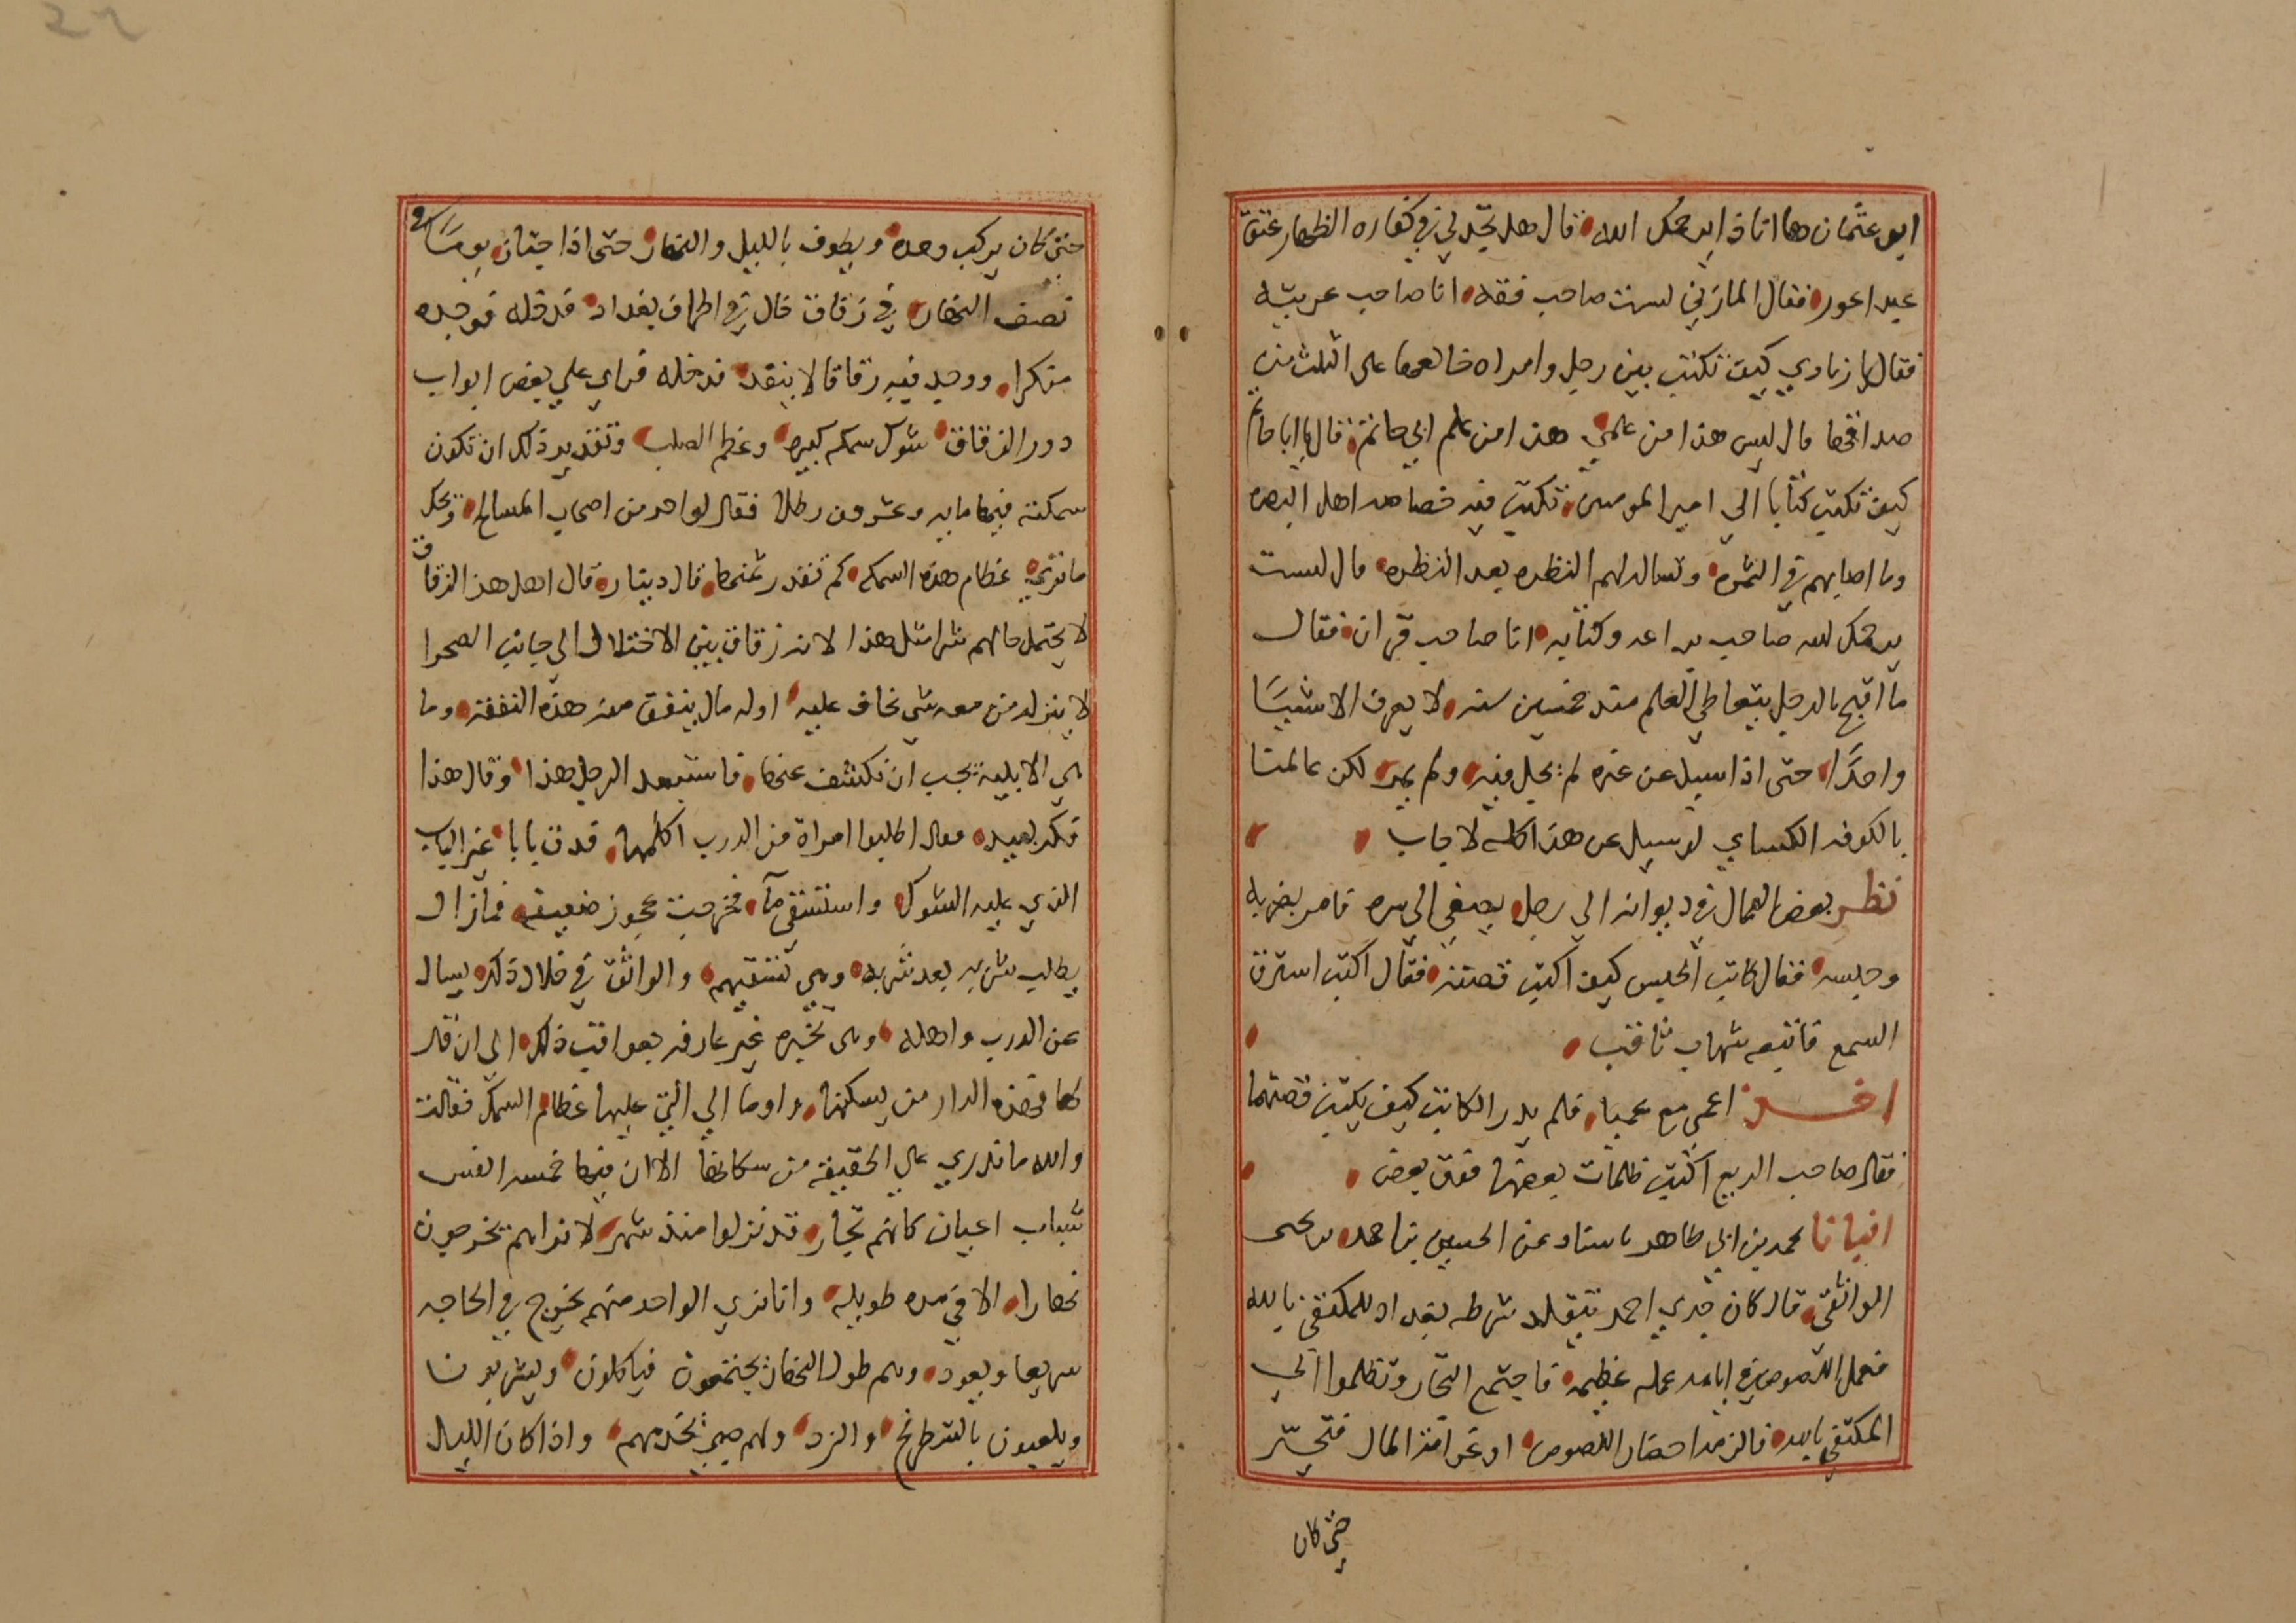 ابو عثمان ها اناذا يرحمك الله قال هل تجزي في كفاره الظهار عتق
عبد اعور فقال المازني لست صاحب فقه انا صاحب عربيه
فقال يا زيادي كيف تكتب بين رجل وامراه خالعها على الثلث من
صداقها قال ليس هذا من علمي هذا من علم ابي حاتم قال يا ابا حاتم
كيف تكتب كتابا الي امير المومنين تكتب فيه خصاصه اهل البصره
وما اصابهم في الثمره وتسال لهم النظره بعد النظره قال لست
يرحمك الله صاحب براعه وكتابه انا صاحب قران فقال
ما اقبح بالرجل يتعاطي العلم منذ خمسين سنه لا يعرف الا شييا
واحدا حتى اذا سيل عن غيره لم يجل فيه ولم يمر لكن عالمنا
بالكوفه الكساي لو سيل عن هذا كله لاجاب
نظر بعض العمال في ديوانه الي رجل يصغي الي سره فامر بضربه
وحبسه فقال كاتب الحبس كيف اكتب قصته فقال اكتب استرق
السمع فاتبعه شهاب ثاقب
اخذ اعمي مع عميا فلم يدر الكاتب كيف يكتب قصتهما
فقال صاحب الربع اكتب ظلمات بعضها فوق بعض
انبانا محمد بن ابي طاهر باسناد عن الحسين بن احمد بن يحيى
الواثقي قال كان جدي احمد يتقلد شرطه بغداد للمكتفي بالله
فعمل اللصوص في ايامه عمله عظيمه فاجتمع التجار وتظلموا الي
المكتفي بالله فالزمه احضار اللصوص او غرامة المال فتحير
حتى كان
حتى كان يركب وحده ويطوف بالليل والنهار حتى اذا اجتاز يوما في
نصف النهار في زقاق خال في اطراف بغداد فدخله فوجده
منكرا ووجد فيه زقاقا لا ينفد فدخله فراي علي بعض ابواب
دور الزقاق شوك سمكه كبيره وعظم الصلب وتقدير ذلك ان تكون
سمكته فيها مايه وعشرون رطلا فقال لواحد من اصحاب المسالح ويحك
ما تري عظام هذه السمكه كم تقدر ثمنها قال دينار قال اهل هذا الزقاق
لا يحتمل حالهم شرا مثل هذا لانه زقاق بين الاختلال الي جانب الصحرا
لا ينزله من معه شي يخاف عليه او له مال ينفق منه هذه النفقه وما
هي الا بليه يجب ان تكشف عنها فاستبعد الرجل هذا وقال هذا
فكر بعيد فقال اطلبوا امراة من الدرب اكلمها فدق بابا غير الباب
الذي عليه الشوك واستسقي مآ فخرجت عجوز ضعيفه فما زال
يطلب شربه بعد شربه وهي تسقيهم والواثق في خلال ذلك يسال
عن الدرب واهله وهى تخبره غير عارفه بعواقب ذلك الي ان قال
لها فهذه الدار من يسكنها واوما الي التي عليها عظام السمك فقالت
والله ما ندري علي الحقيقه من سكانها الا ان فيها خمسه انفس
شباب اعيان كانهم تجار قد نزلوا منذ شهر لا نراهم يخرجون
نهارا الا في مده طويله وانا نري الواحد منهم يخرج في الحاجه
سريعا ويعود وهم طول النهار يجتمعون فياكلون ويشربون
ويلعبون بالشطرنج والنرد ولهم صبي يخدمهم واذا كان الليل